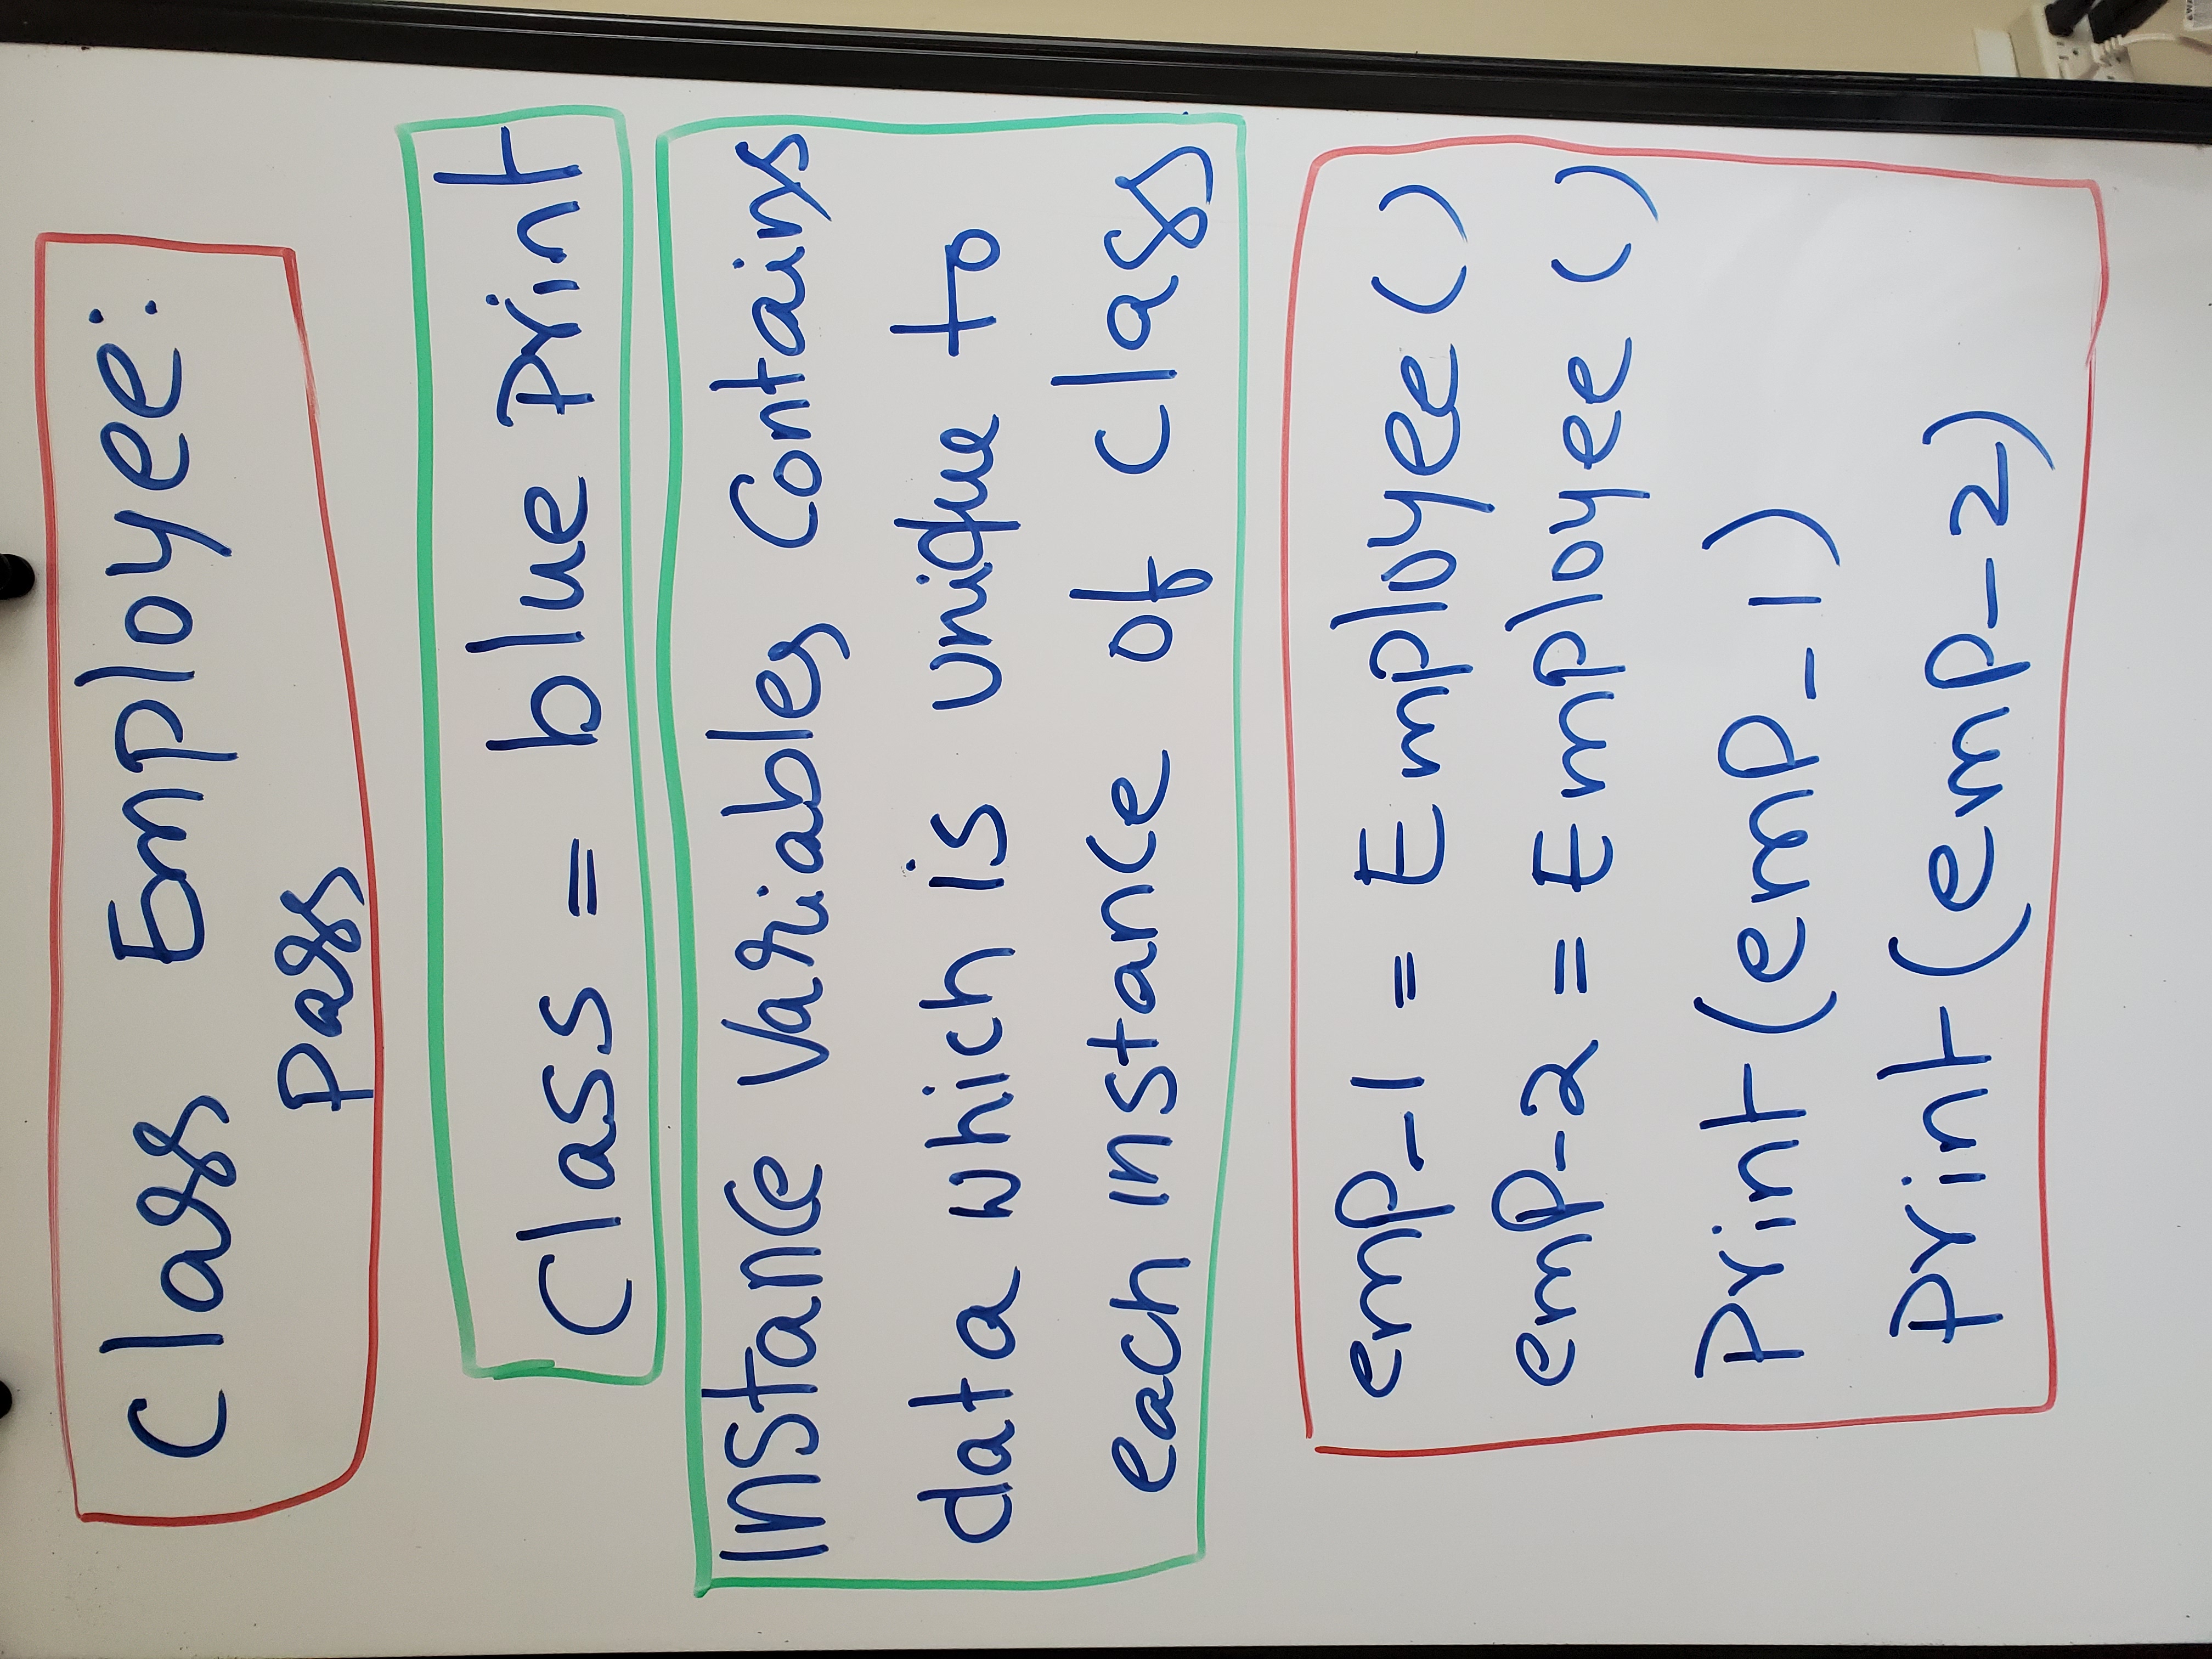 Class Employee:
pass
Class = blue print
Instance Variables Contains
data which is unique to
each instance of class
emp_1 = Employee()
emp-2 = Employee ()
Print(emp_1)
Print(emp-2)